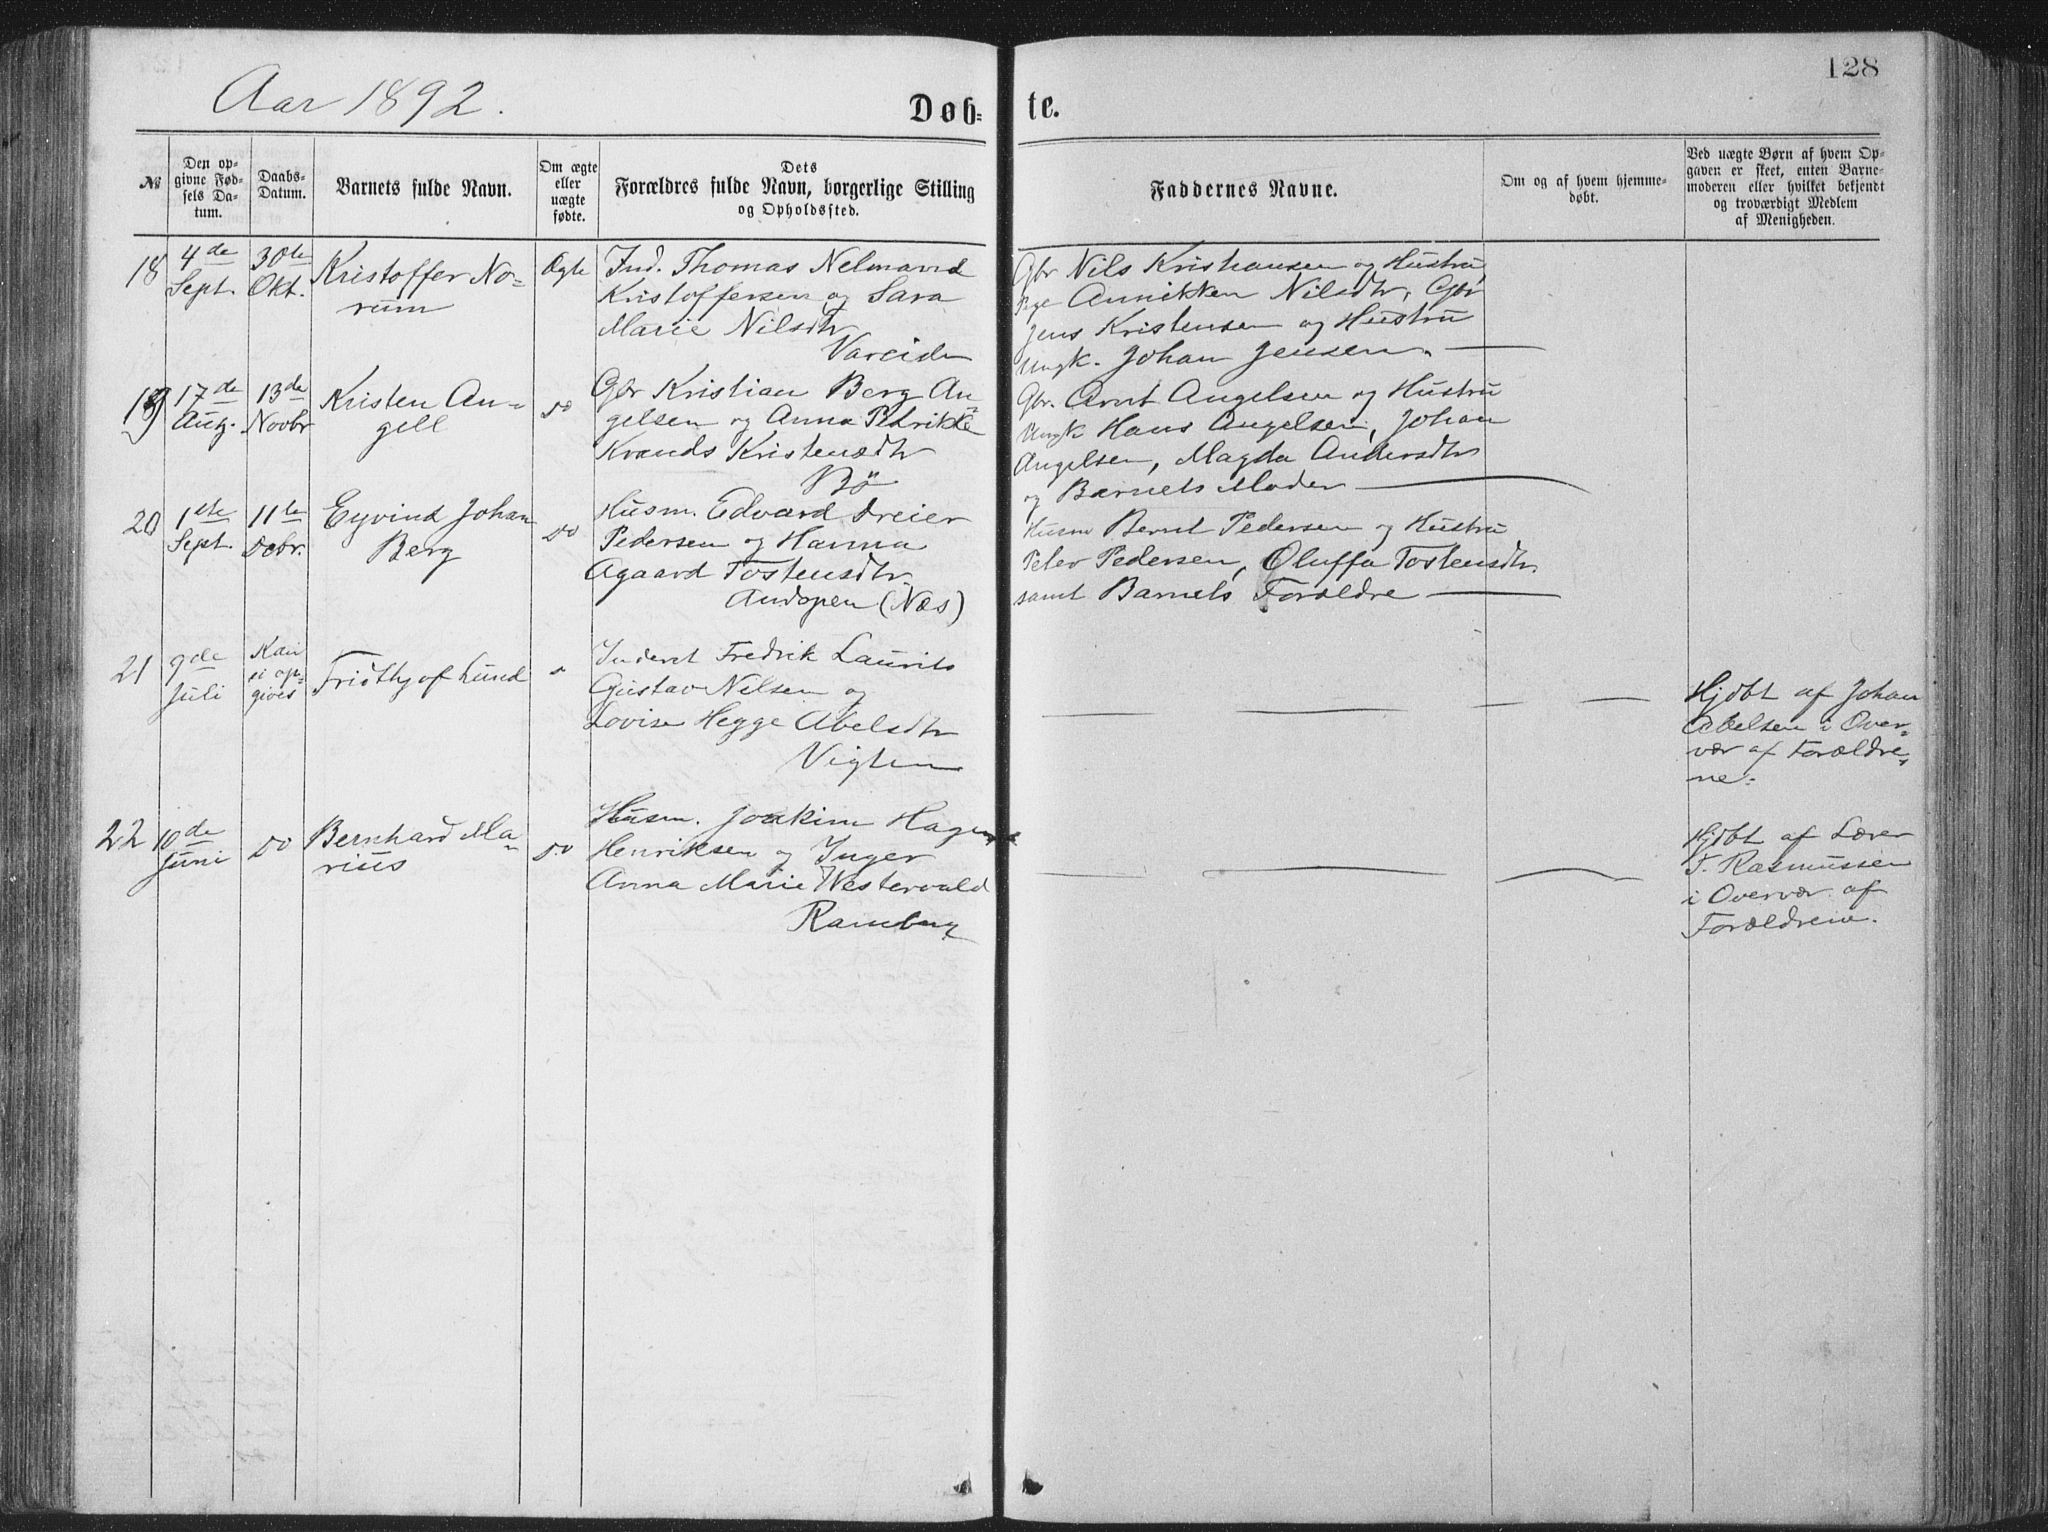 128
Aar 1892.
Døb-
te.
№
Den op-
givne Fød-
sels Da-
tum.
Daabs-
Datum.
Barnets fulde Navn.
Om ægte
eller
uægte
fødte.
Dets
Forældres fulde Navn, borgerlige Stilling
og Opholdssted.
Faddernes Navne.
Om og af hvem hjemme-
døbt.
Ved uægte Børn af hvem Op-
gaven er skeet, enten Barne-
moderen eller hvilket bekjendt
og troværdigt Medlem
af Menigheden.
18
4de
Sept.
30te
Okt.
Kristoffer No-
rum
Ægte
Ind. Thomas Nelmann
Kristoffersen og Sara
Marie Nilsdtr
Vareiden
Gbr Nils Kristiansen og Hustru
Pige Annikken Nilsdtr, Gbr
Jens Kristensen og Hustru
Ungk. Johan Jensen.
19
17de
Aug.
13de
Novbr
Kristen An-
gell
do
Gbr Kristian Berg An-
gelsen og Anna Petrikke
Kvands Kristensdtr
Bö
Gbr. Arnt Angelsen og Hustru
Ungk Hans Angelsen, Johan
Angelsen, Magda Andersdtr
og Barnets Moder
20
1ste
Sept.
11te
Debr.
Eyvind Johan
Berg
do
Husm. Edvard Dreier
Pedersen og Hanna
Agaard Tostensdtr.
Andopen (Næs)
Husm Bernt Pedersen og Hustru
Peter Pedersen, Oluffa Tostensdtr.
samt Barnets Forældre
21
9de
Juli
Kan
ei op-
gives
Fridthyof Lund
Inderst Fredrik Laurits
Gustav Nilsen og
Lovise Hegge Abelsdtr
Vigten
Hjdbt af Johan
Abelsen i Over-
vær af Forældre-
ne.
22
10de
Juni
do
Bernhard Ma-
rius
do
Husm. Joakim Hagen
Henriksen og Inger
Anna Marie Westervald
Ramberg
Hjdbt af Lærer
T. Rasmussen
i Overvær af
Forældrene.